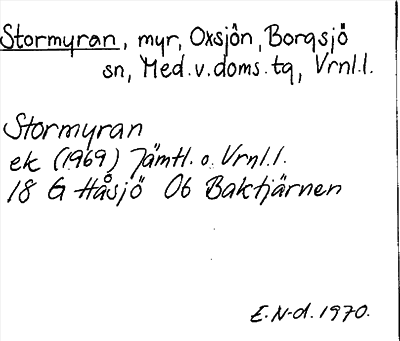 Stormyran, myr, Oxsjön, Borgsjö
sn, Med.v.doms.tg, Vrnl.l.
Stormyran
ek (1969) Jämtl. o. Vrnl.l.
18 G Håsjö Ob Baktjärnen
E.N-d. 1970.